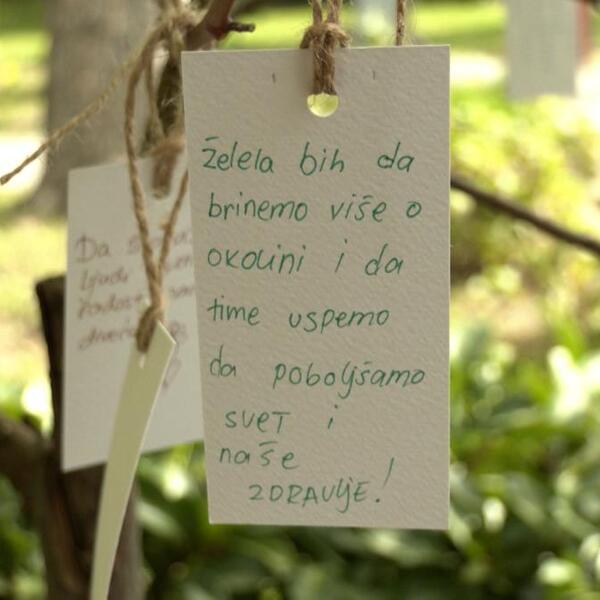 Želela bih da
brinemo više o
okolini i da
time uspemo
da poboljšamo
svet i
naše
ZDRAVLJE!
Da